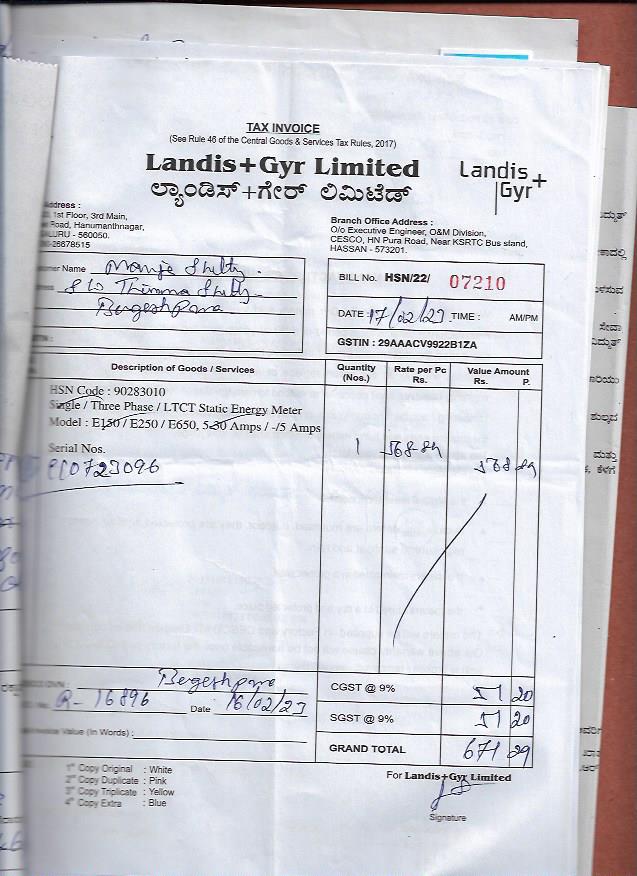 TAX INVOICE
(See Rule 46 of the Central Goods & Services Tax Rules, 2017)
Landis+Gyr Limited
ಲ್ಯಾಂಡಿಸ್+ಗೇರ್ ಲಿಮಿಟೆಡ್
Landis+
Gyr
Address :
1st Floor, 3rd Main,
Road, Hanumanthnagar,
- 560050.
-26678515
Branch Office Address :
O/o Executive Engineer, O&M Division,
CESCO, HN Pura Road, Near KSRTC Bus stand,
HASSAN - 573201.
Name Manje Shetty
S/o Thimma Shetty
BILL No. HSN/22/ 07210
DATE : 17/02/23 TIME : AM/PM
GSTIN : 29AAACV9922B1ZA
Description of Goods / Services
Quantity (Nos.)
Rate per Pc Rs.
Value Amount Rs. P.
HSN Code : 90283010
Single / Three Phase / LTCT Static Energy Meter
Model : E150 / E250 / E650, 5-30 Amps / -/5 Amps
Serial Nos.
1 568-89 568 89
CGST @ 9% 51 20
SGST @ 9% 51 20
GRAND TOTAL 671 29
R- 16896 Date 16/02/23
Value (In Words) :
1st Copy Original : White
2nd Copy Duplicate : Pink
3rd Copy Triplicate : Yellow
4th Copy Extra : Blue
For Landis+Gyr Limited
Signature